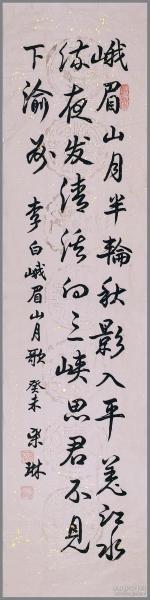 峨眉山月半輪秋影入平羌江水
流夜发清溪向三峡思君不見
下渝州 李白峨眉山月歌 癸未 梁琳